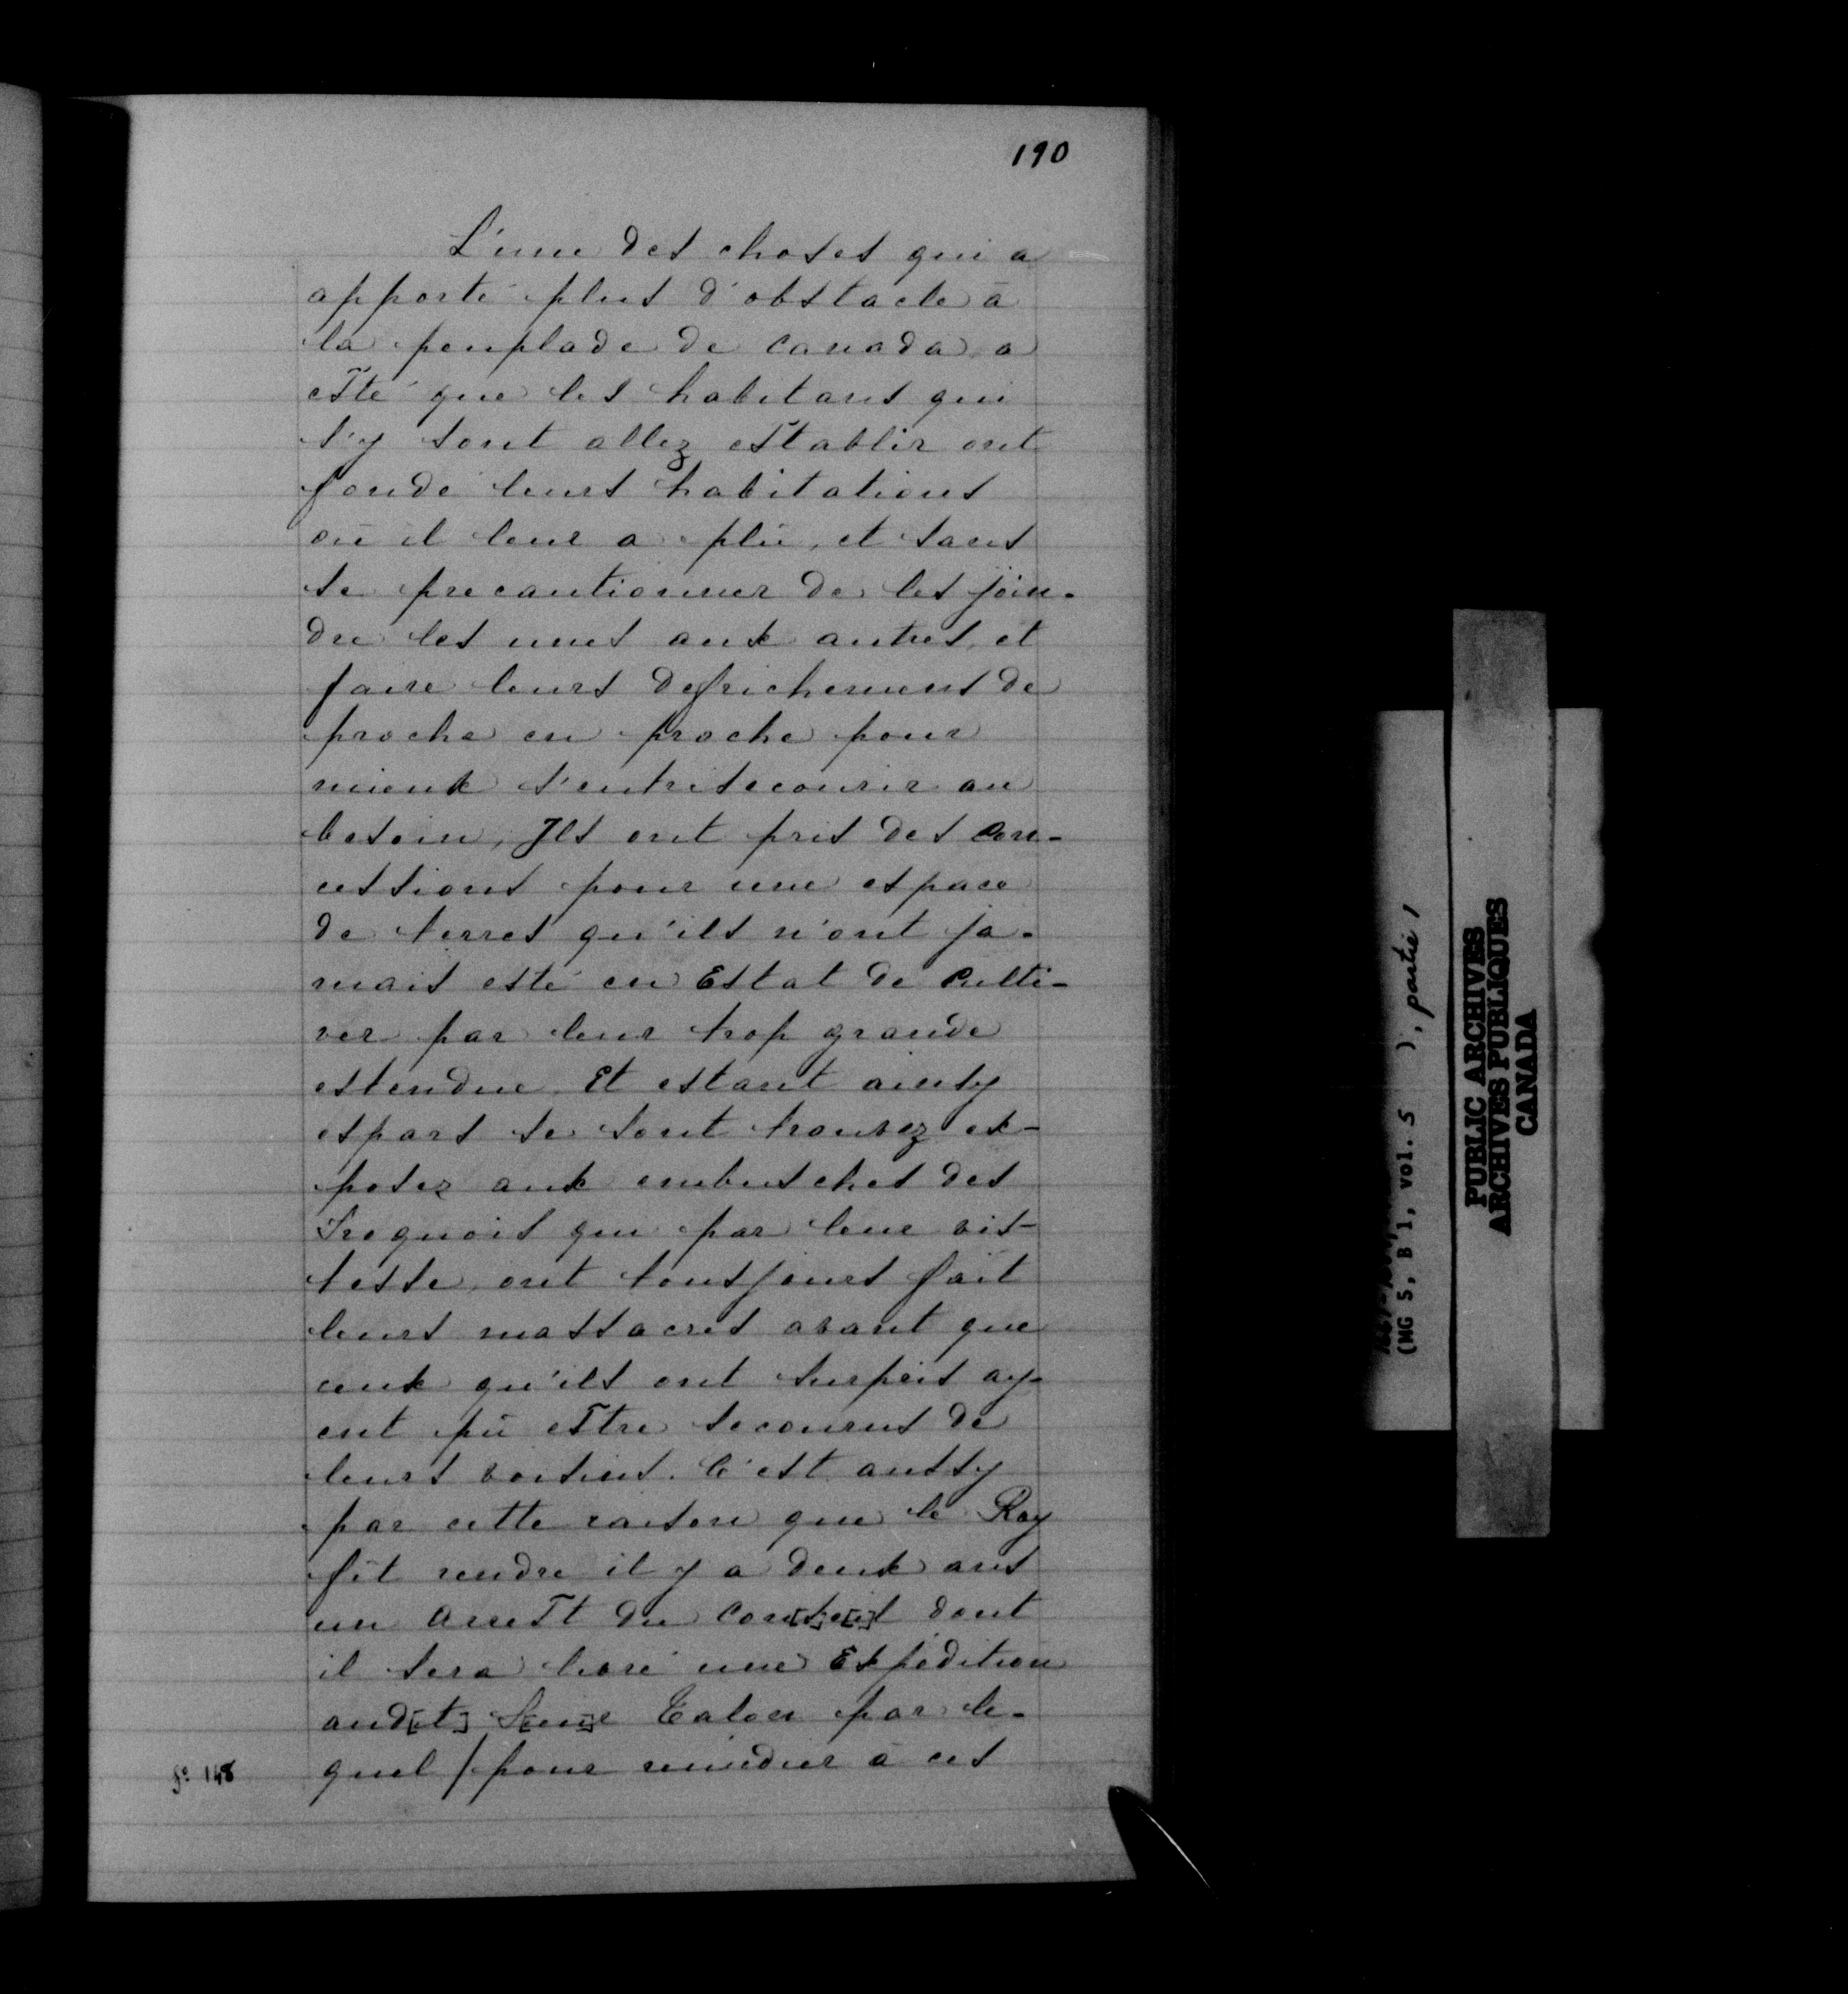 190
L'une des choses qui a
apporté plus d'obstacle à
la peuplade de Canada a
esté que les habitans qui
s'y sont allez establir ont
fondé leurs habitations
où il leur a plû, et sans
se precautionner de les join-
dre les unes aux autres, et
faire leurs defrichemens de
proche en proche pour
mieux s'entresecourir au
besoin, Ils ont pris des Con-
cessions pour une espace
de terres qu'ils n'ont ja-
mais esté en Estat de Culti-
ver par leur trop grande
estendue. Et estant ainsy
espars se sont trouvez ex-
posez aux embusches des
Iroquois qui par leur vis-
tesse, ont tousjours fait
leurs massacres avant que
ceux qu'ils ont surpris ay-
ent pû estre secourus de
leurs voisins. C'est aussy
par cette raison que le Roy
fit rendre il y a deux ans
un Arrest du Con[s]e[i]l dont
il sera livré une Expédition
aud[it] S[ieu]r Talon par le-
fo. 148 quel / pour remédier à ces
(MG 5, B 1, vol. 5 ), partie 1
PUBLIC ARCHIVES
ARCHIVES PUBLIQUES
CANADA